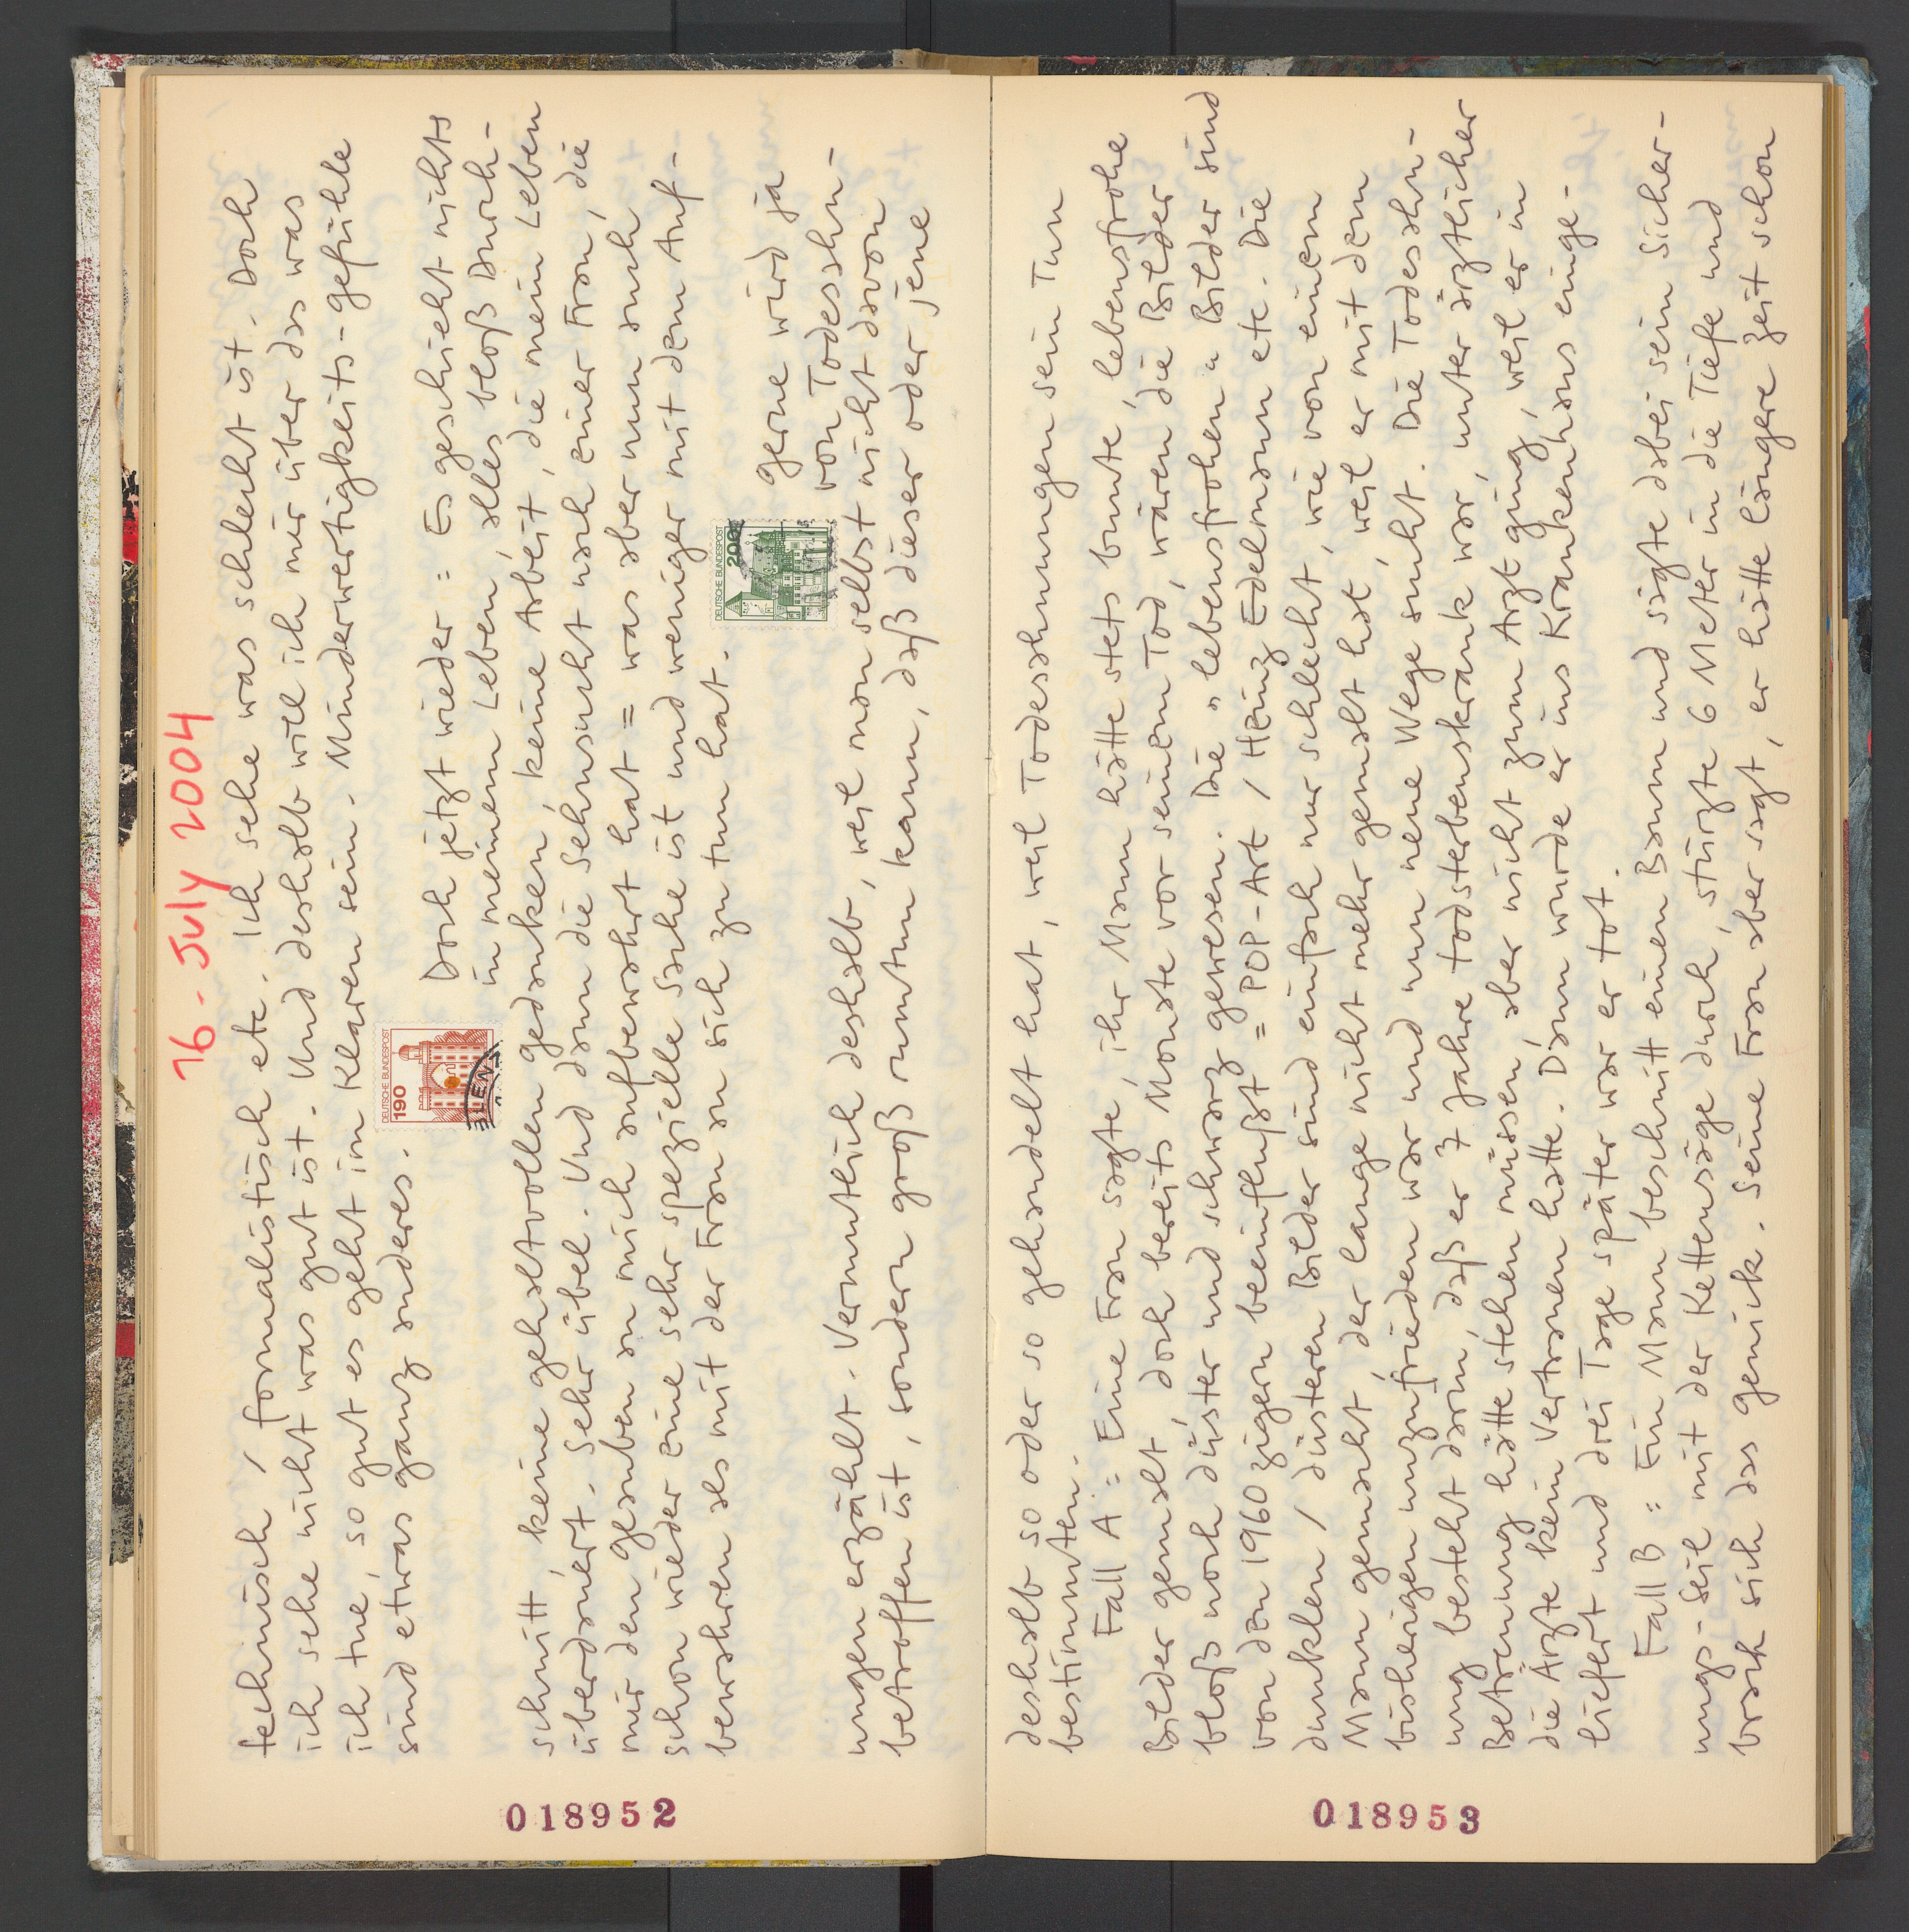 16. July 2004
technisch / formalistisch etc. Ich sehe was schlecht ist. Doch
ich sehe nicht was gut ist. Und deshalb will ich mir über das was
ich tue, so gut es geht im Klaren sein. Minderwertigkeits-gefühle
sind etwas ganz anderes.
DEUTSCHE BUNDESPOST
190
LEN
Doch jetzt wieder = Es geschieht nichts
in meinem Leben, alles bloß Durch-
schnitt, keine gehaltvollen gedanken, keine Arbeit, die mein Leben
überdauert. Sehr übel. Und dann die Sehnsucht nach einer Frau, die
mir den glauben an mich aufbewahrt hat = was aber nun auch
schon wieder eine sehr spezielle Sache ist und weniger mit dem Auf-
bewahren als mit der Frau an sich zu tun hat.
DEUTSCHE BUNDESPOST
200
gerne wird ja
von Todesahn-
ungen erzählt. Vermutlich deshalb, weil man selbst nicht davon
betroffen ist, sondern groß rumtun kann, daß dieser oder jene
018952
deshalb so oder so gehandelt hat, weil Todesahnungen sein Tun
bestimmten.
Fall A = Eine Frau sagte, ihr Mann hätte stets bunte, lebensfrohe
Bilder gemalt, doch bereits Monate vor seinem Tod, wären die Bilder
bloß noch düster und schwarz gewesen. Die „lebensfrohen" Bilder sind
von den 1960zigern beeinflußt = POP-Art / Heinz Edelmann etc. Die
dunklen / düsteren Bilder sind einfach nur schlecht, wie von einem
Mann gemacht, der lange nicht mehr gemalt hat, weil er mit dem
bisherigen unzufrieden war und nun neue Wege sucht. Die Todesahn-
ung besteht darin, daß er 7 Jahre todsterbenskrank war, unter ärztlicher
Betreuung hätte stehen müssen, aber nicht zum Arzt ging, weil er in
die Ärzte kein Vertrauen hatte. Dann wurde er ins Krankenhaus einge-
liefert und drei Tage später war er tot.
Fall B = Ein Mann beschnitt einen Baum und sägte dabei sein Sicher-
ungs-Seil mit der Kettensäge durch, stürzte 6 Meter in die Tiefe und
brach sich das genick. Seine Frau aber sagt, er hätte längere Zeit schon
018953